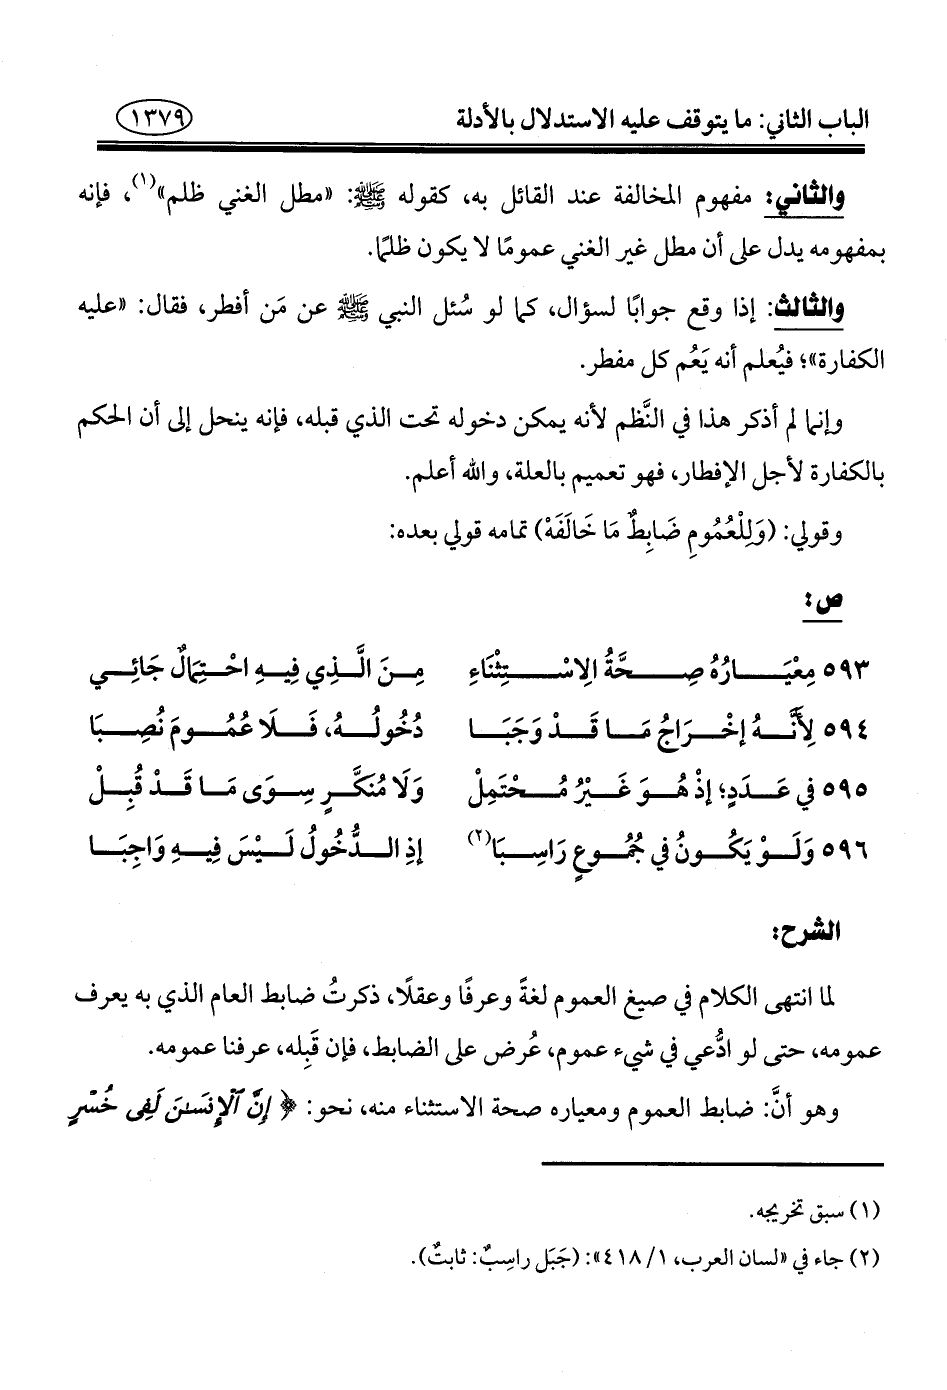 الباب الثاني: ما يتوقف عليه الاستدلال بالأدلة ١٣٧٩
والثاني: مفهوم المخالفة عند القائل به، كقوله ﷺ: «مطل الغني ظلم»(١)، فإنه
بمفهومه يدل على أن مطل غير الغني عمومًا لا يكون ظلمًا.
والثالث: إذا وقع جوابًا لسؤال، كما لو سُئل النبي ﷺ عن مَن أفطر، فقال: «عليه
الكفارة»؛ فيُعلم أنه يَعُم كل مفطر.
وإنما لم أذكر هذا في النَّظم لأنه يمكن دخوله تحت الذي قبله، فإنه ينحل إلى أن الحكم
بالكفارة لأجل الإفطار، فهو تعميم بالعلة، والله أعلم.
وقولي: (وَلِلْعُمُومِ ضَابِطٌ مَا خَالَفَهْ) تمامه قولي بعده:
ص:
٥٩٣ مِعْيَارُهُ صِحَّةُ الِاسْتِثْنَاءِ مِنَ الَّذِي فِيهِ احْتِمَالٌ جَائِي
٥٩٤ لِأَنَّهُ إِخْرَاجُ مَا قَدْ وَجَبَا دُخُولُهُ، فَلَا عُمُومَ نُصِبَا
٥٩٥ فِي عَدَدٍ؛ إِذْ هُوَ غَيْرُ مُحْتَمِلْ وَلَا مُنَكَّرٍ سِوَى مَا قَدْ قُبِلْ
٥٩٦ وَلَوْ يَكُونُ فِي جُمُوعٍ رَاسِبَا(٢) إِذِ الدُّخُولُ لَيْسَ فِيهِ وَاجِبَا
الشرح:
لما انتهى الكلام في صيغ العموم لغةً وعرفًا وعقلًا، ذكرتُ ضابط العام الذي به يعرف
عمومه، حتى لو ادُّعي في شيء عموم، عُرض على الضابط، فإن قَبِله، عرفنا عمومه.
وهو أنَّ: ضابط العموم ومعياره صحة الاستثناء منه، نحو: ﴿إِنَّ ٱلْإِنسَٰنَ لَفِى خُسْرٍ
(١) سبق تخريجه.
(٢) جاء في «لسان العرب، ١/ ٤١٨»: (جَبَل راسِبٌ: ثابتٌ).